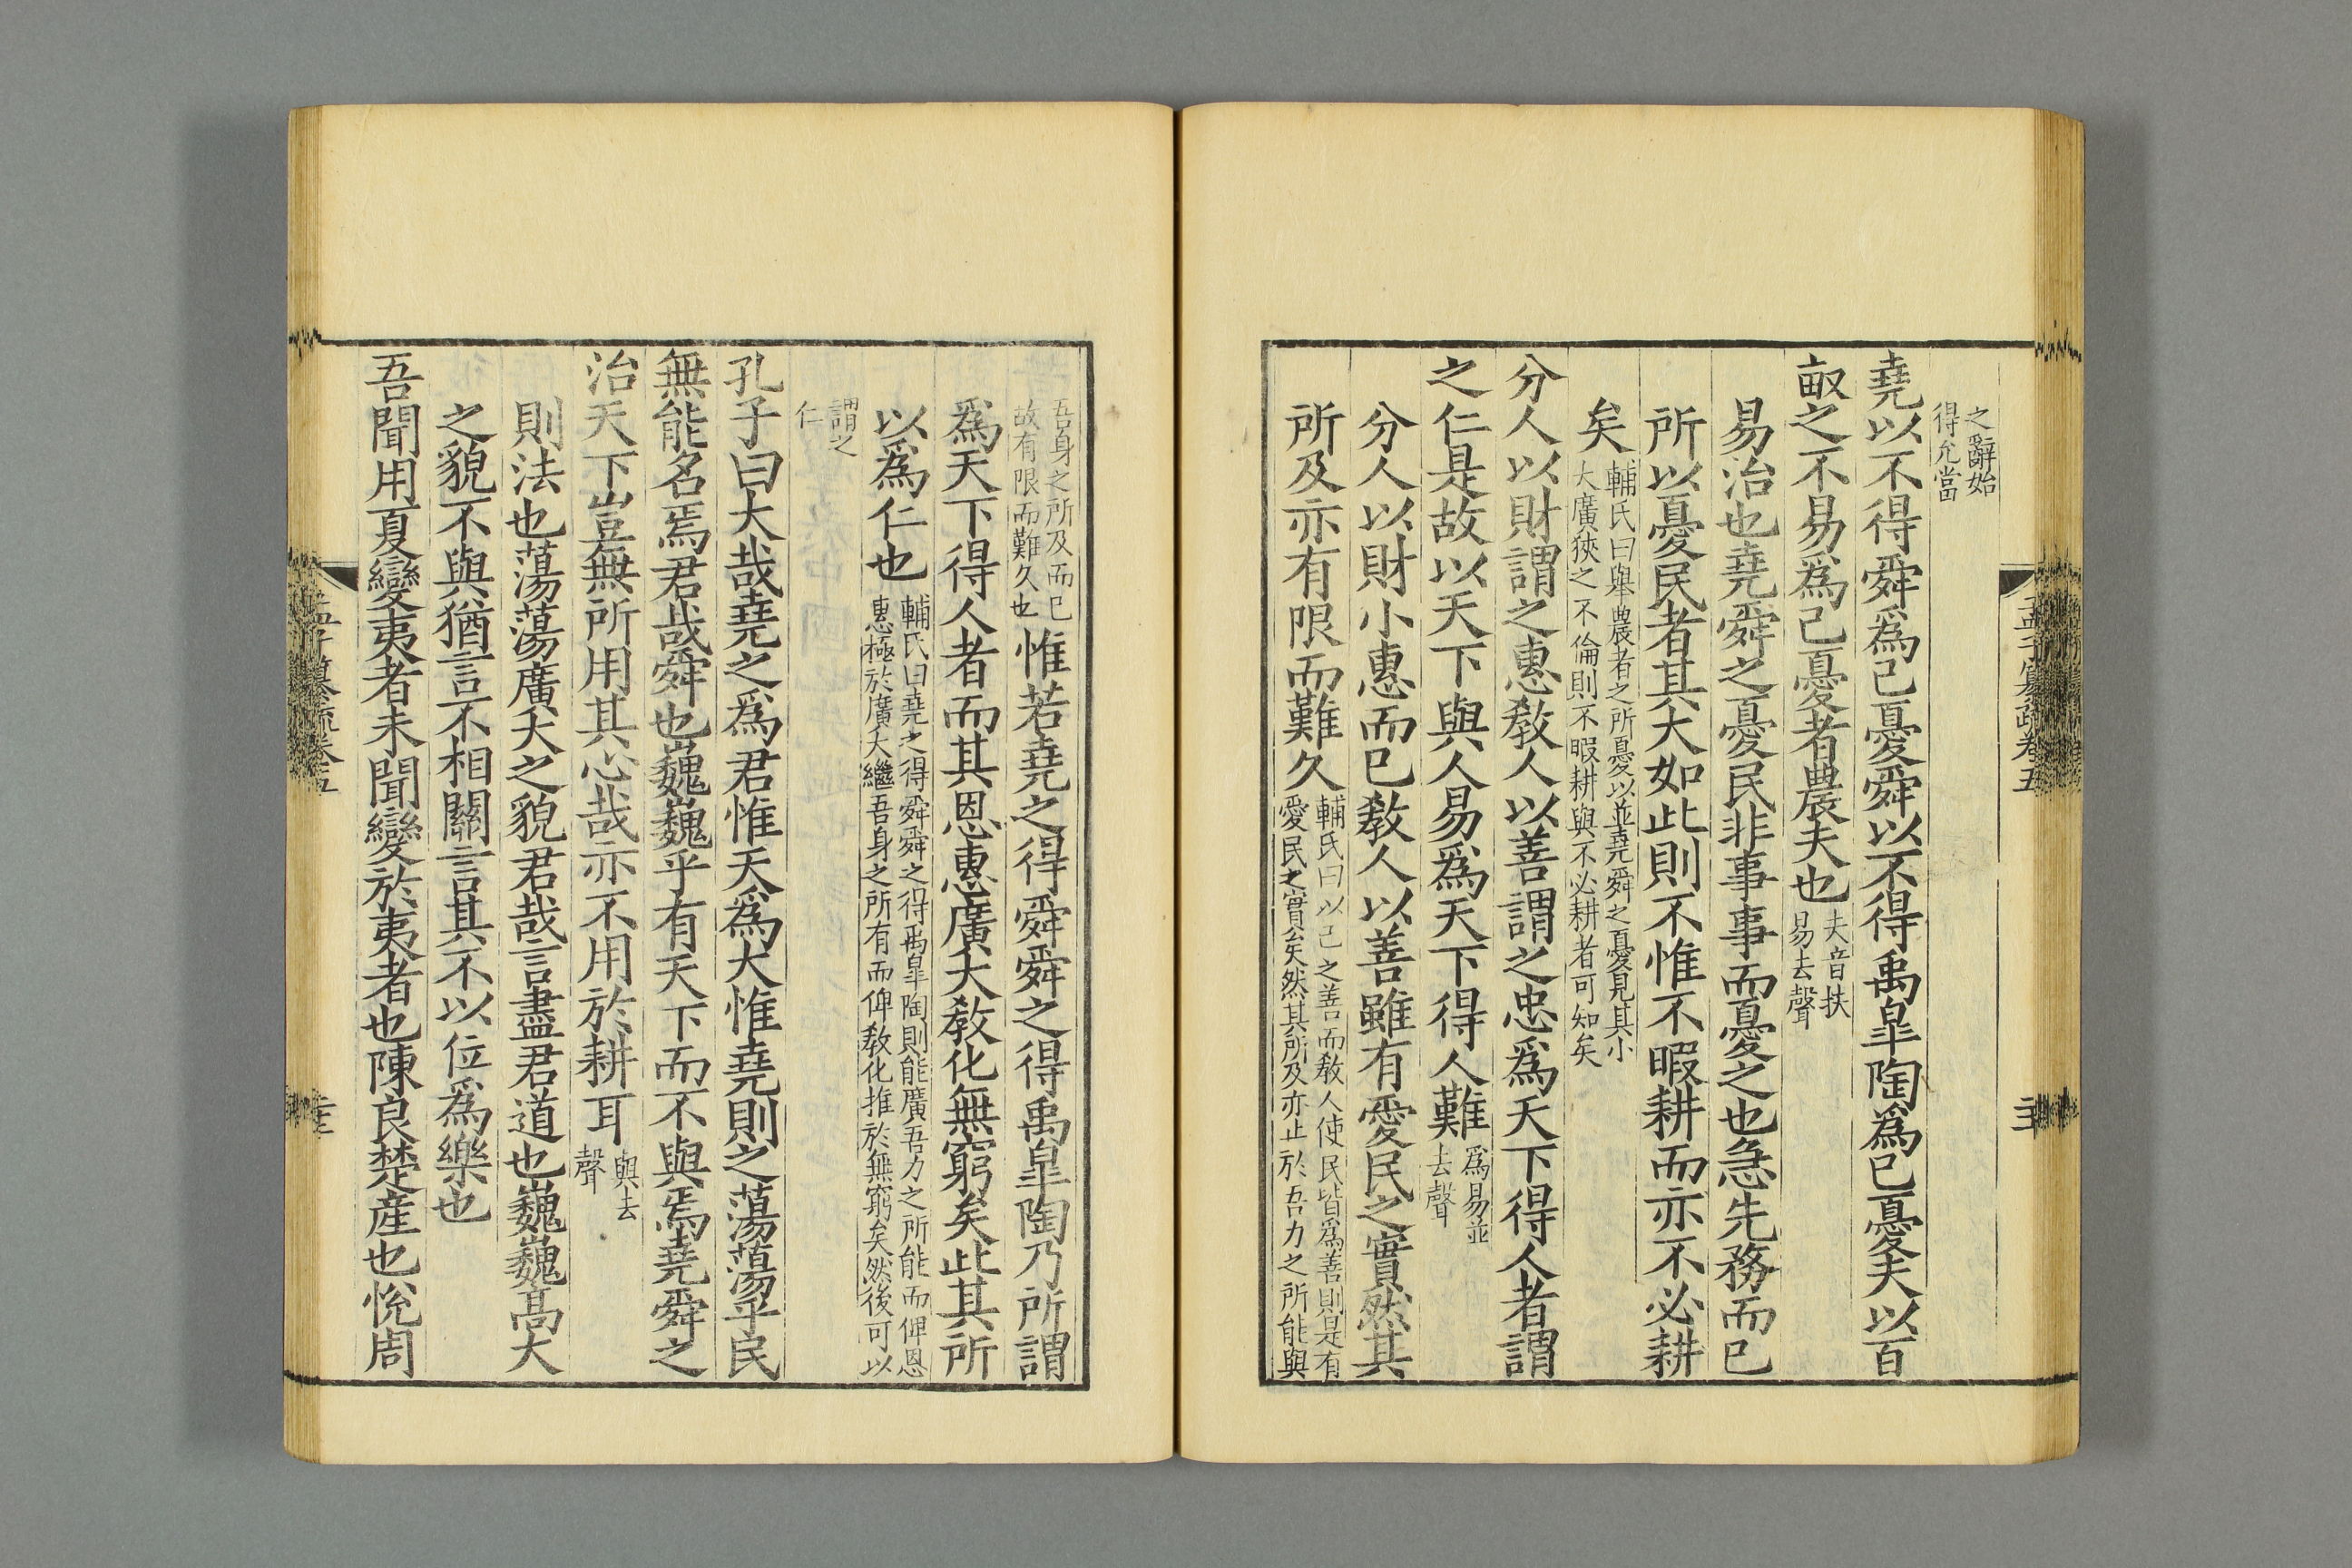 之辭始
得允當
堯以不得舜爲己憂舜以不得禹臯陶爲己憂夫以百
畝之不易爲己憂者農夫也夫音扶
易去聲
易治也堯舜之憂民非事事而憂之也急先務而已
所以憂民者其大如此則不惟不暇耕而亦不必耕
矣輔氏曰舉農者之所憂以並堯舜之憂見其小
大廣狹之不倫則不暇耕與不必耕者可知矣
分人以財謂之惠敎人以善謂之忠爲天下得人者謂
之仁是故以天下與人易爲天下得人難爲易並
去聲
分人以財小惠而已敎人以善雖有愛民之實然其
所及亦有限而難久輔氏曰以己之善而敎人使民皆爲善則是有
愛民之實矣然其所及亦止於吾力之所能與
孟子纂疏卷五
吾身之所及而已
故有限而難久也惟若堯之得舜舜之得禹臯陶乃所謂
爲天下得人者而其恩惠廣大敎化無窮矣此其所
以爲仁也輔氏曰堯之得舜舜之得禹臯陶則能廣吾力之所能而俾恩
惠極於廣大繼吾身之所有而俾敎化推於無窮矣然後可以
謂之
仁
孔子曰大哉堯之爲君惟天爲大惟堯則之蕩蕩乎民
無能名焉君哉舜也巍巍乎有天下而不與焉堯舜之
治天下豈無所用其心哉亦不用於耕耳與去
聲
則法也蕩蕩廣大之貌君哉言盡君道也巍巍高大
之貌不與猶言不相關言其不以位爲樂也
吾聞用夏變夷者未聞變於夷者也陳良楚産也悅周
孟子纂疏卷五